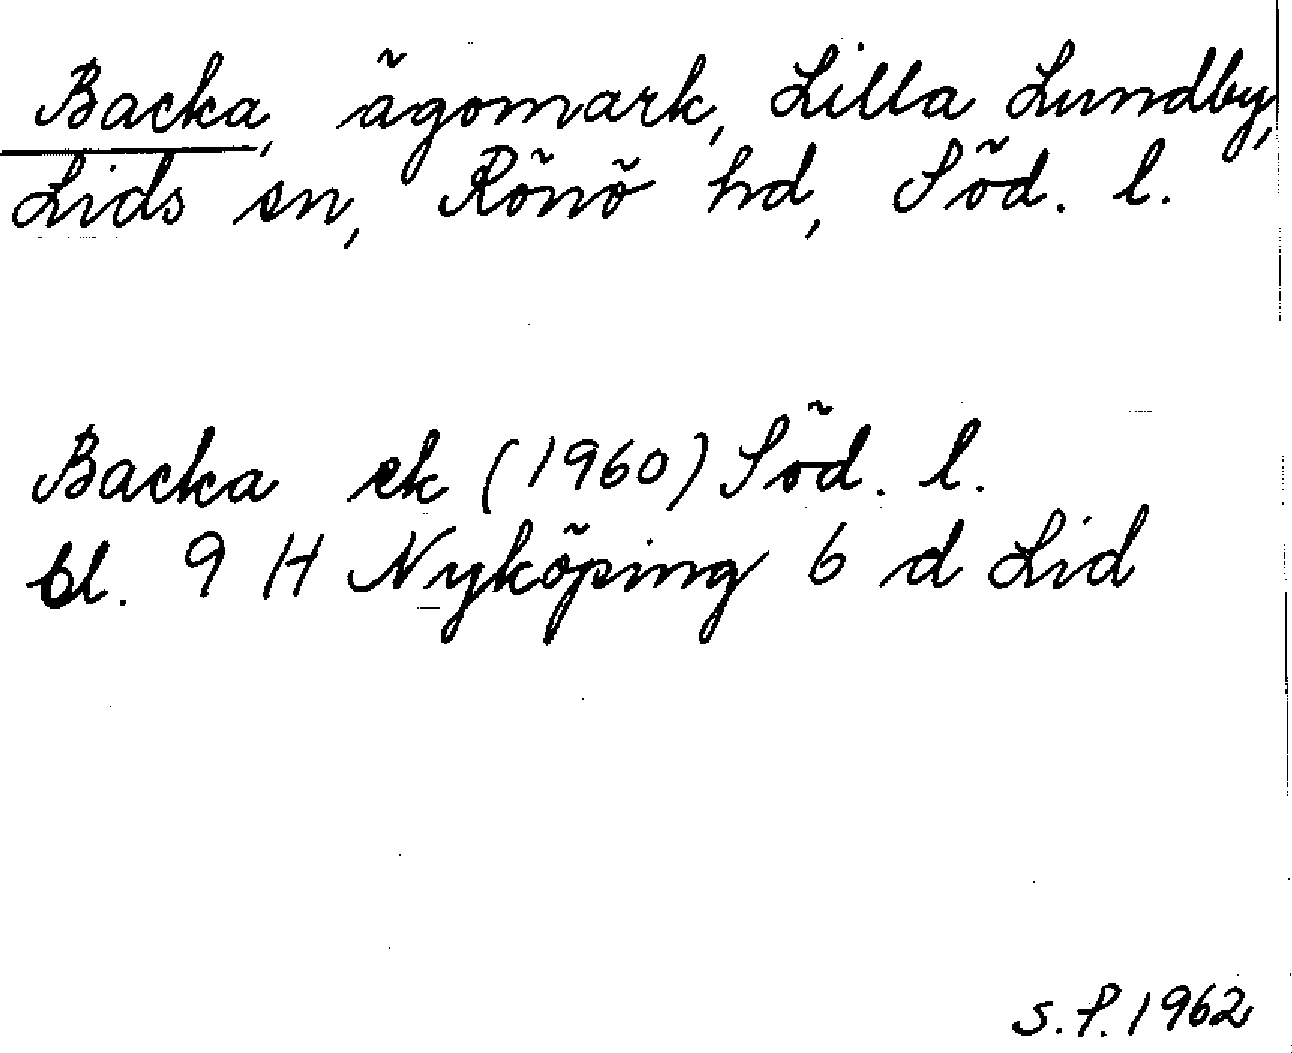 Backa, ägomark, Lilla Lundby,
Lids sn, Rönö hd, Söd. l.
Backa ek (1960) Söd. l.
bl. 9 H Nyköping 6 d Lid
S.P. 1962